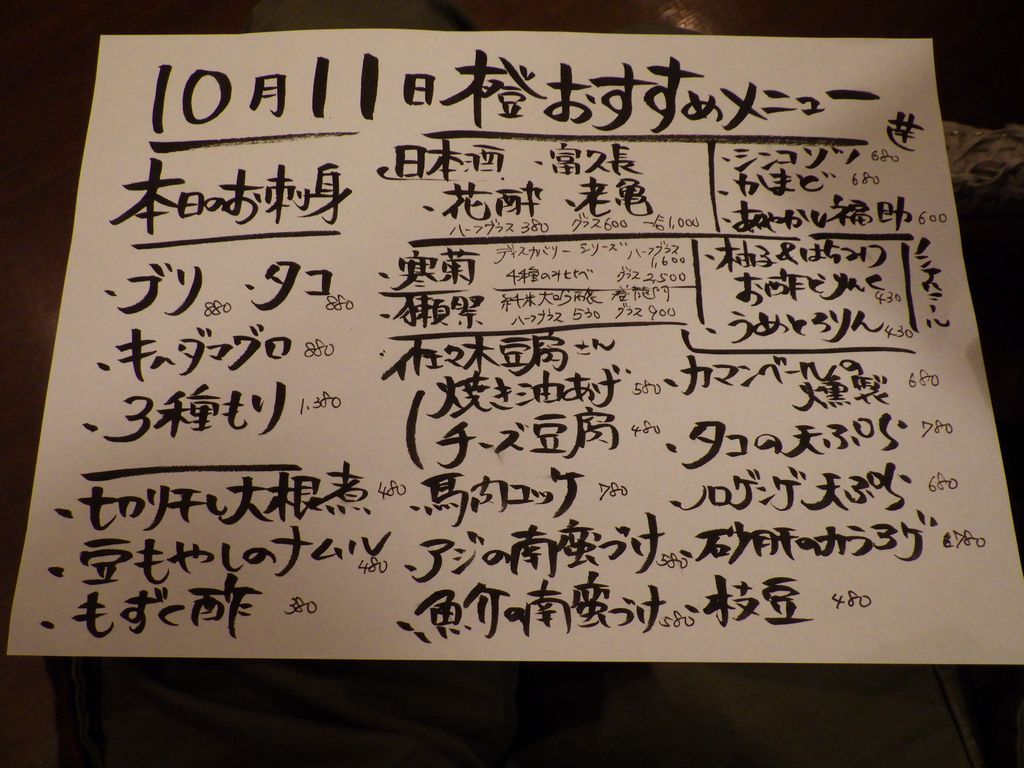 10月11日 橙おすすめメニュー
本日のお刺身
・ブリ 880 ・タコ 880
・キハダマグロ 880
・3種もり 1,380
・切り干し大根煮 480
・豆もやしのナムル 480
・もずく酢 380
日本酒 ・富久長
・花酔 ・老亀
ハーフグラス 380 グラス600 一合1,000
・寒菊 ディスカバリーシリーズ ハーフグラス 1,600
4種のみ比べ グラス 2,500
・獺祭 純米大吟醸 登龍門
ハーフグラス 530 グラス 900
・シンコゾツ 680
・かまど 680
・あやかし福助 600
・柚子&はちみつ
お酢どりんく 430
・うめとろりん 430
ノンアルコール
佐々木豆腐さん
焼き油あげ 580
チーズ豆腐 480
・馬肉ユッケ 780
・アジの南蛮づけ 580
・魚介の南蛮づけ 580
・カマンベールの
燻製 680
・タコの天ぷら 780
・ノドグロ天ぷら 680
・砂肝のカラアゲ 780
・枝豆 480